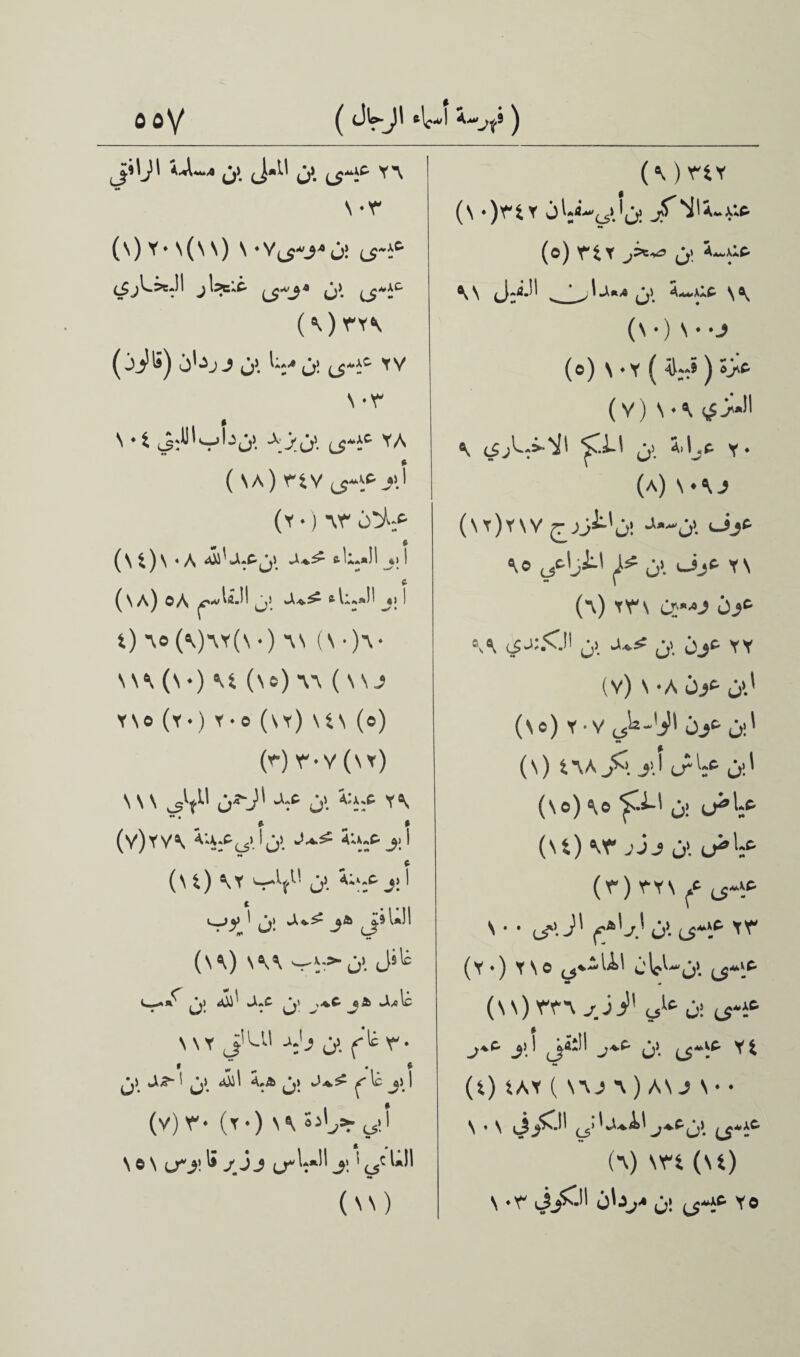 ( فهرسة أسماء الرجال ) ٥٥٧
(٩) ٣٤٢
عنبسة الاكر بن أبي سفيان ٣٤٢ (١٠)
عنبسة بن صخر ٣٤٢ (٥)
١٩ عنبسة بن مسافر النفل ٩١
و ١٠٠ (١٠)
عنزة (قبيلة) ١٠٢ (٥)
العنزي ١٠٩ (٧)
٢٠ عوانة بن الحكم الأخباري ٩
و١٠٩ (٨)
عوف بن سعد بن الخزرج ٢١٧ (١٢)
٢١ عوف بن محلم الخزاعي ٩٥
عون ومعين ٢٣١ (٦)
٢٢ عون بن محمد بن الكندي ٩٩
ابن عون ١٠٨ (٧)
ابن عون الواسطي ٢٠٧ (١٥)
ابن عياش أبو بكر ٤٦٨ (١)
عياض بن الحكم ٩٥ (١٥)
عياض بن درر ٩٣ (١٤)
عيسى عم ٢٢١ (٣)
٢٣ عيسى بن إبراهيم الربي ١٠٠
عيسى بن سليمان الهاشمي ٢١٥ (٢٠)
عيسى بن علي الوزير ٣٣٦ (١١)
٢٤ عيسى بن عمر الثقفي أبو عمر
١٠٠ و٨١ (٦ و١٦) ٤٨٢ (٤)
عيسى بن عمر الهمداني الكوفي ١٠١
(١٤) ١٣٤ (٦)
٢٥ عيسى بن مروان الكوفي ١٠٣
٢٦ عيسى بن المعل بن مسلمة الرافقي
١٠٣
عيسى بن موسى ١٠٧ (١١) ٢٠١ (١)
عيسى بن موسى غنجار البخاري
٣٢٩ (٩)
٢٧ عيسى بن مينا بن وردان (قالون)
١٠٣
٢٨ عيسى بن يزيد بن دأب الليثي ١٠٤
أبو عيسى ٣٤٧ (١٨)
عيلان ٦٣ (٢٠)
أبو العيناء محمد بن عبد الله ١٠٨ (١٤)
أبو العيناء محمد بن القاسم ٥٨ (١٨)
٦٠ (١٠) ٦١ (١٠) ٦٢ (٩) ٦٥ (٤
و١١) ٦٦ (١٥) ٩٤ (١٠) ١١٩
(٥) ١٤١ (١٢) ٢٠٥ (٢٠) ٢١٥
(١٢) ٣٠٧ (٣)
٢٩ عيينة بن عبد الرحمن المهلبي ١١١
أبو عيينة محمد بن أبي عيينة ٢٧٩ (٧)
أبو عيينة بن المهلب ٩٢ (١٤)
الغافقي هو محمد بن أيوب
غافل بن حبيب ١٩٩ (١٩)
غالد هو عمر بن عبد الله بن كعب
٣٠ غانم بن وليد المالقي ١١٢
أبو غانم محمد بن هبة الله بن أحمد بن
أبي جرادة ١٩ (٢٠) ٣٠ (٧)
الغاعي أبو العباس وزير قابوس ١٥١
(١١)